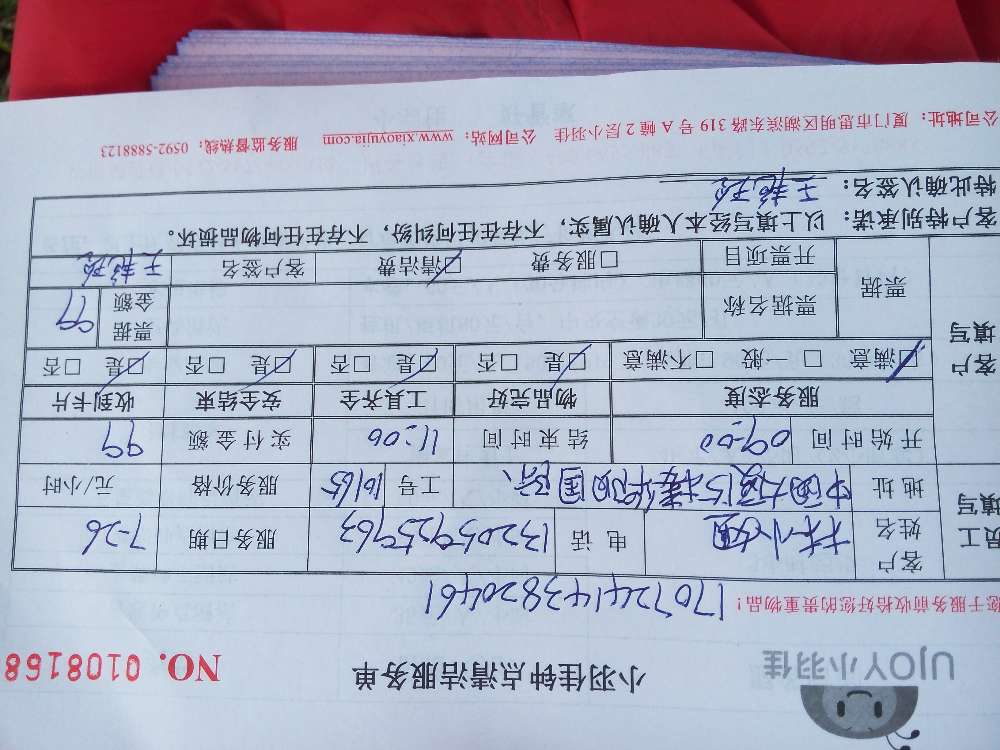 UJOY小羽佳
小羽佳钟点清洁服务单
NO. 0108168
您于服务前收拾好您的贵重物品!
170724143820461
员工填写
客户姓名 林小 电话 13205925963 服务日期 7-26
地址 中 国际、 工号 10165 服务价格 元/小时
开始时间 09:00 结束时间 11:00 实付金额 99
客户填写
服务态度 物品完好 工具齐全 安全结束 收到卡片
☑满意 □一般 □不满意 ☑是 □否 ☑是 □否 ☑是 □否 ☑是 □否
票据 票据名称 票据金额 99
开票项目 □服务费 ☑清洁费 客户签名 王艳玲
客户特别承诺:以上填写经本人确认属实,不存在任何纠纷,不存在任何物品损坏。
特此确认签名:王艳玲
公司地址:厦门市思明区湖滨东路 319 号 A 幢 2 层小羽佳 公司网站:www.xiaoyujia.com 服务监督热线:0592-5888123